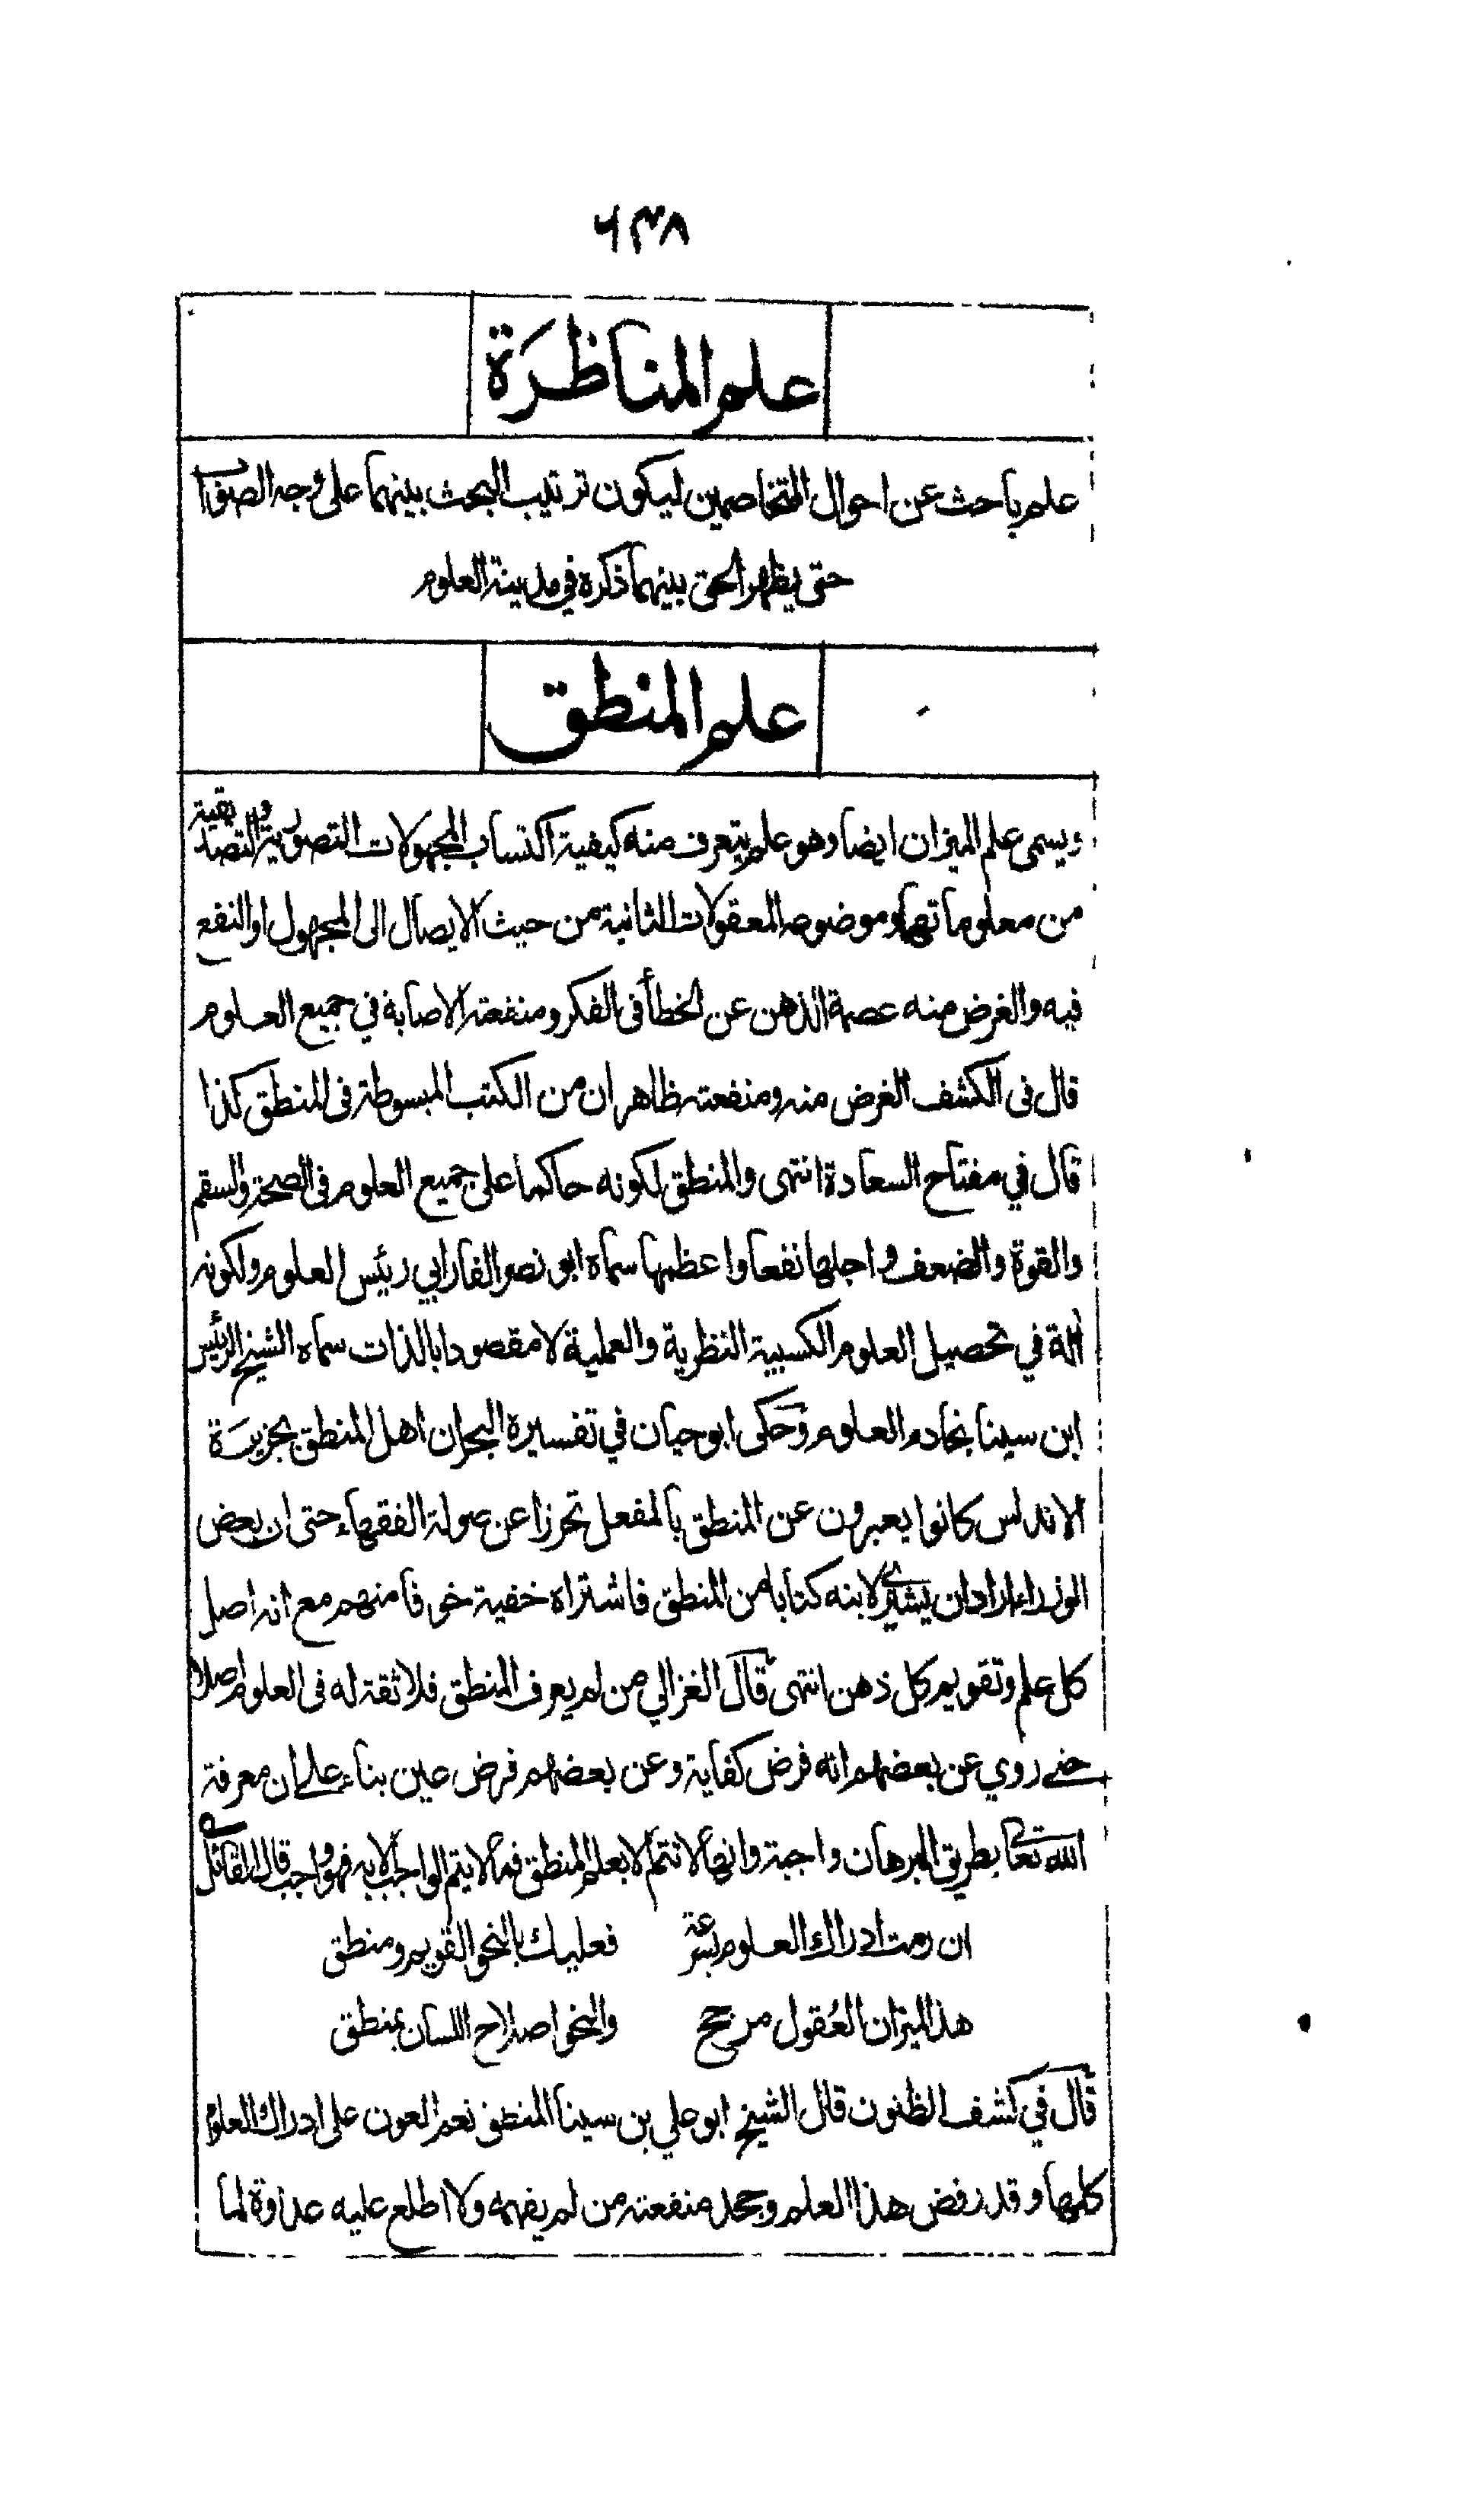 ٦٣٨
علم المناظرة
علم باحث عن احوال المتخاصمين ليكون ترتيب البحث بينهما على وجه الصواب
حتى يظهر الحق بينهما ذكره في مدينة العلوم
علم المنطق
ويسمى علم الميزان ايضا وهو علم يتعرف منه كيفية اكتساب المجهولات التصورية والتصديقية
من معلوماتها وموضوعه المعقولات الثانية من حيث الايصال الى المجهول او النفع
فيه والغرض منه عصمة الذهن عن الخطأ في الفكر ومنفعته الاصابة في جميع العلوم
قال في الكشف الغرض منه ومنفعته ظاهران من الكتب المبسوطة في المنطق كذا
قال في مفتاح السعادة انتهى والمنطق لكونه حاكما على جميع العلوم في الصحة والسقم
والقوة والضعف واجلها نفعا واعظمها سماه ابو نصر الفارابي رئيس العلوم ولكونه
آلة في تحصيل العلوم الكسبية النظرية والعملية لا مقصودا بالذات سماه الشيخ الرئيس
ابن سينا بخادم العلوم وحكى ابو حيان في تفسيره البحر ان اهل المنطق بجزيرة
الاندلس كانوا يعبرون عن المنطق بالمفعل تحرزا عن صولة الفقهاء حتى ان بعض
الوزراء اراد ان يشتري لابنه كتابا من المنطق فاشتراه خفية خوفا منهم مع انه اصل
كل علم وتقويم كل ذهن انتهى قال الغزالي من لم يعرف المنطق فلا ثقة له في العلوم اصلا
حتى روي عن بعضهم انه فرض كفاية وعن بعضهم فرض عين بناء على ان معرفة
الله تعالى بطريق البرهان واجبة وانها لا تتم الا بعلم المنطق فما لا يتم الواجب الا به فهو واجب قال القائل
ان رمت ادراك العلوم بسرعة فعليك بالنحو القويم ومنطق
هذا لميزان العُقول مرجح والنحو اصلاح اللسان بمنطق
قال في كشف الظنون قال الشيخ ابو علي بن سينا المنطق نعم العون على ادراك العلوم
كلها وقد رفض هذا العلم وجحد منفعته من لم يفهمه ولا اطلع عليه عداوة لما